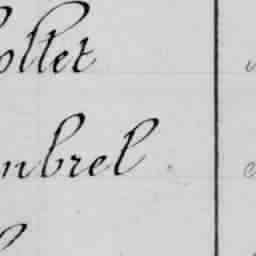 ollet
mbrel